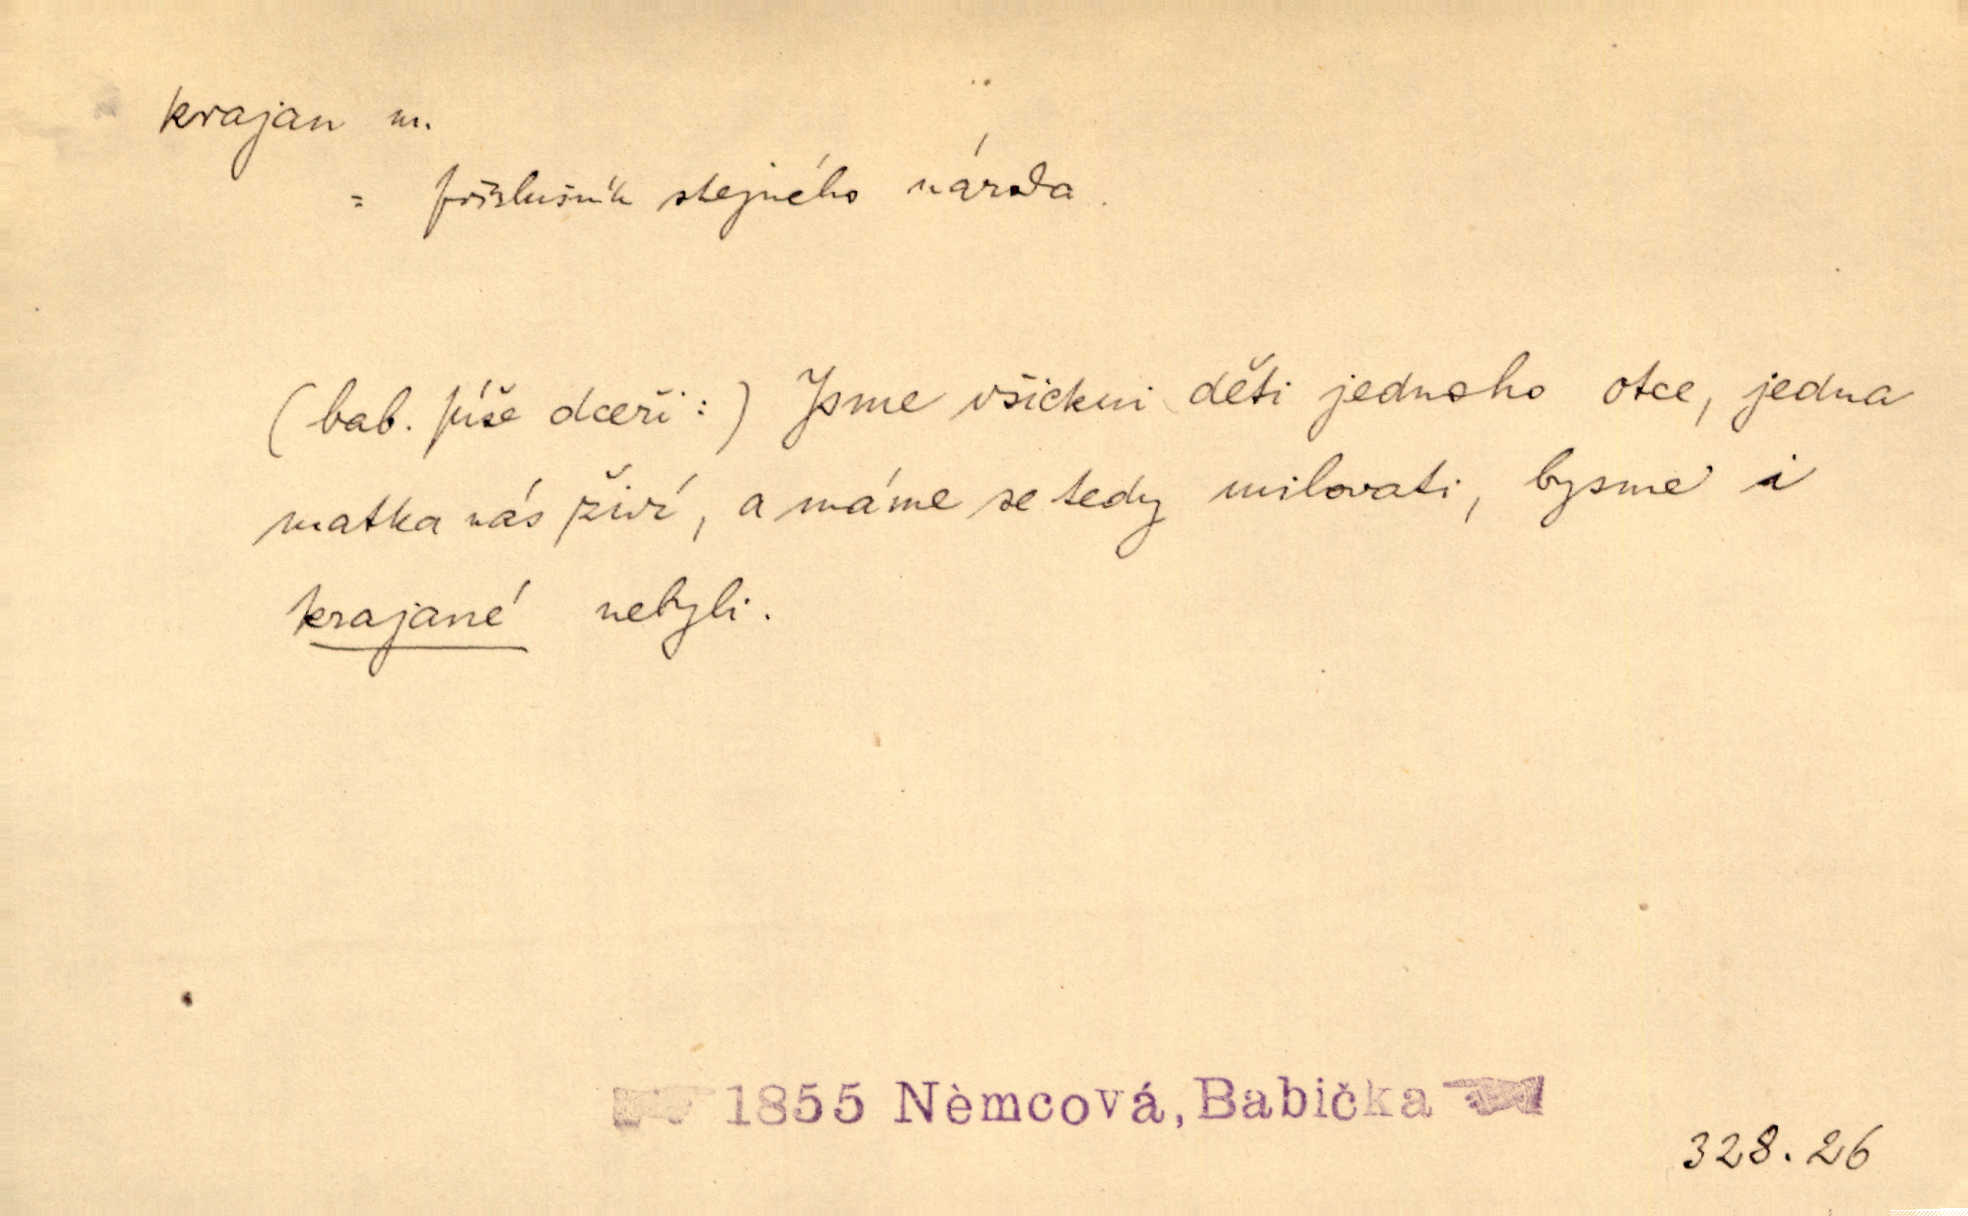 krajan m.
= příslušník stejného národa.
(bab. píše dceři:) Jsme všickni děti jednoho otce, jedna
matka nás živí, a máme se tedy milovati, bysme i
krajané nebyli.
1855 Němcová, Babička
328.26